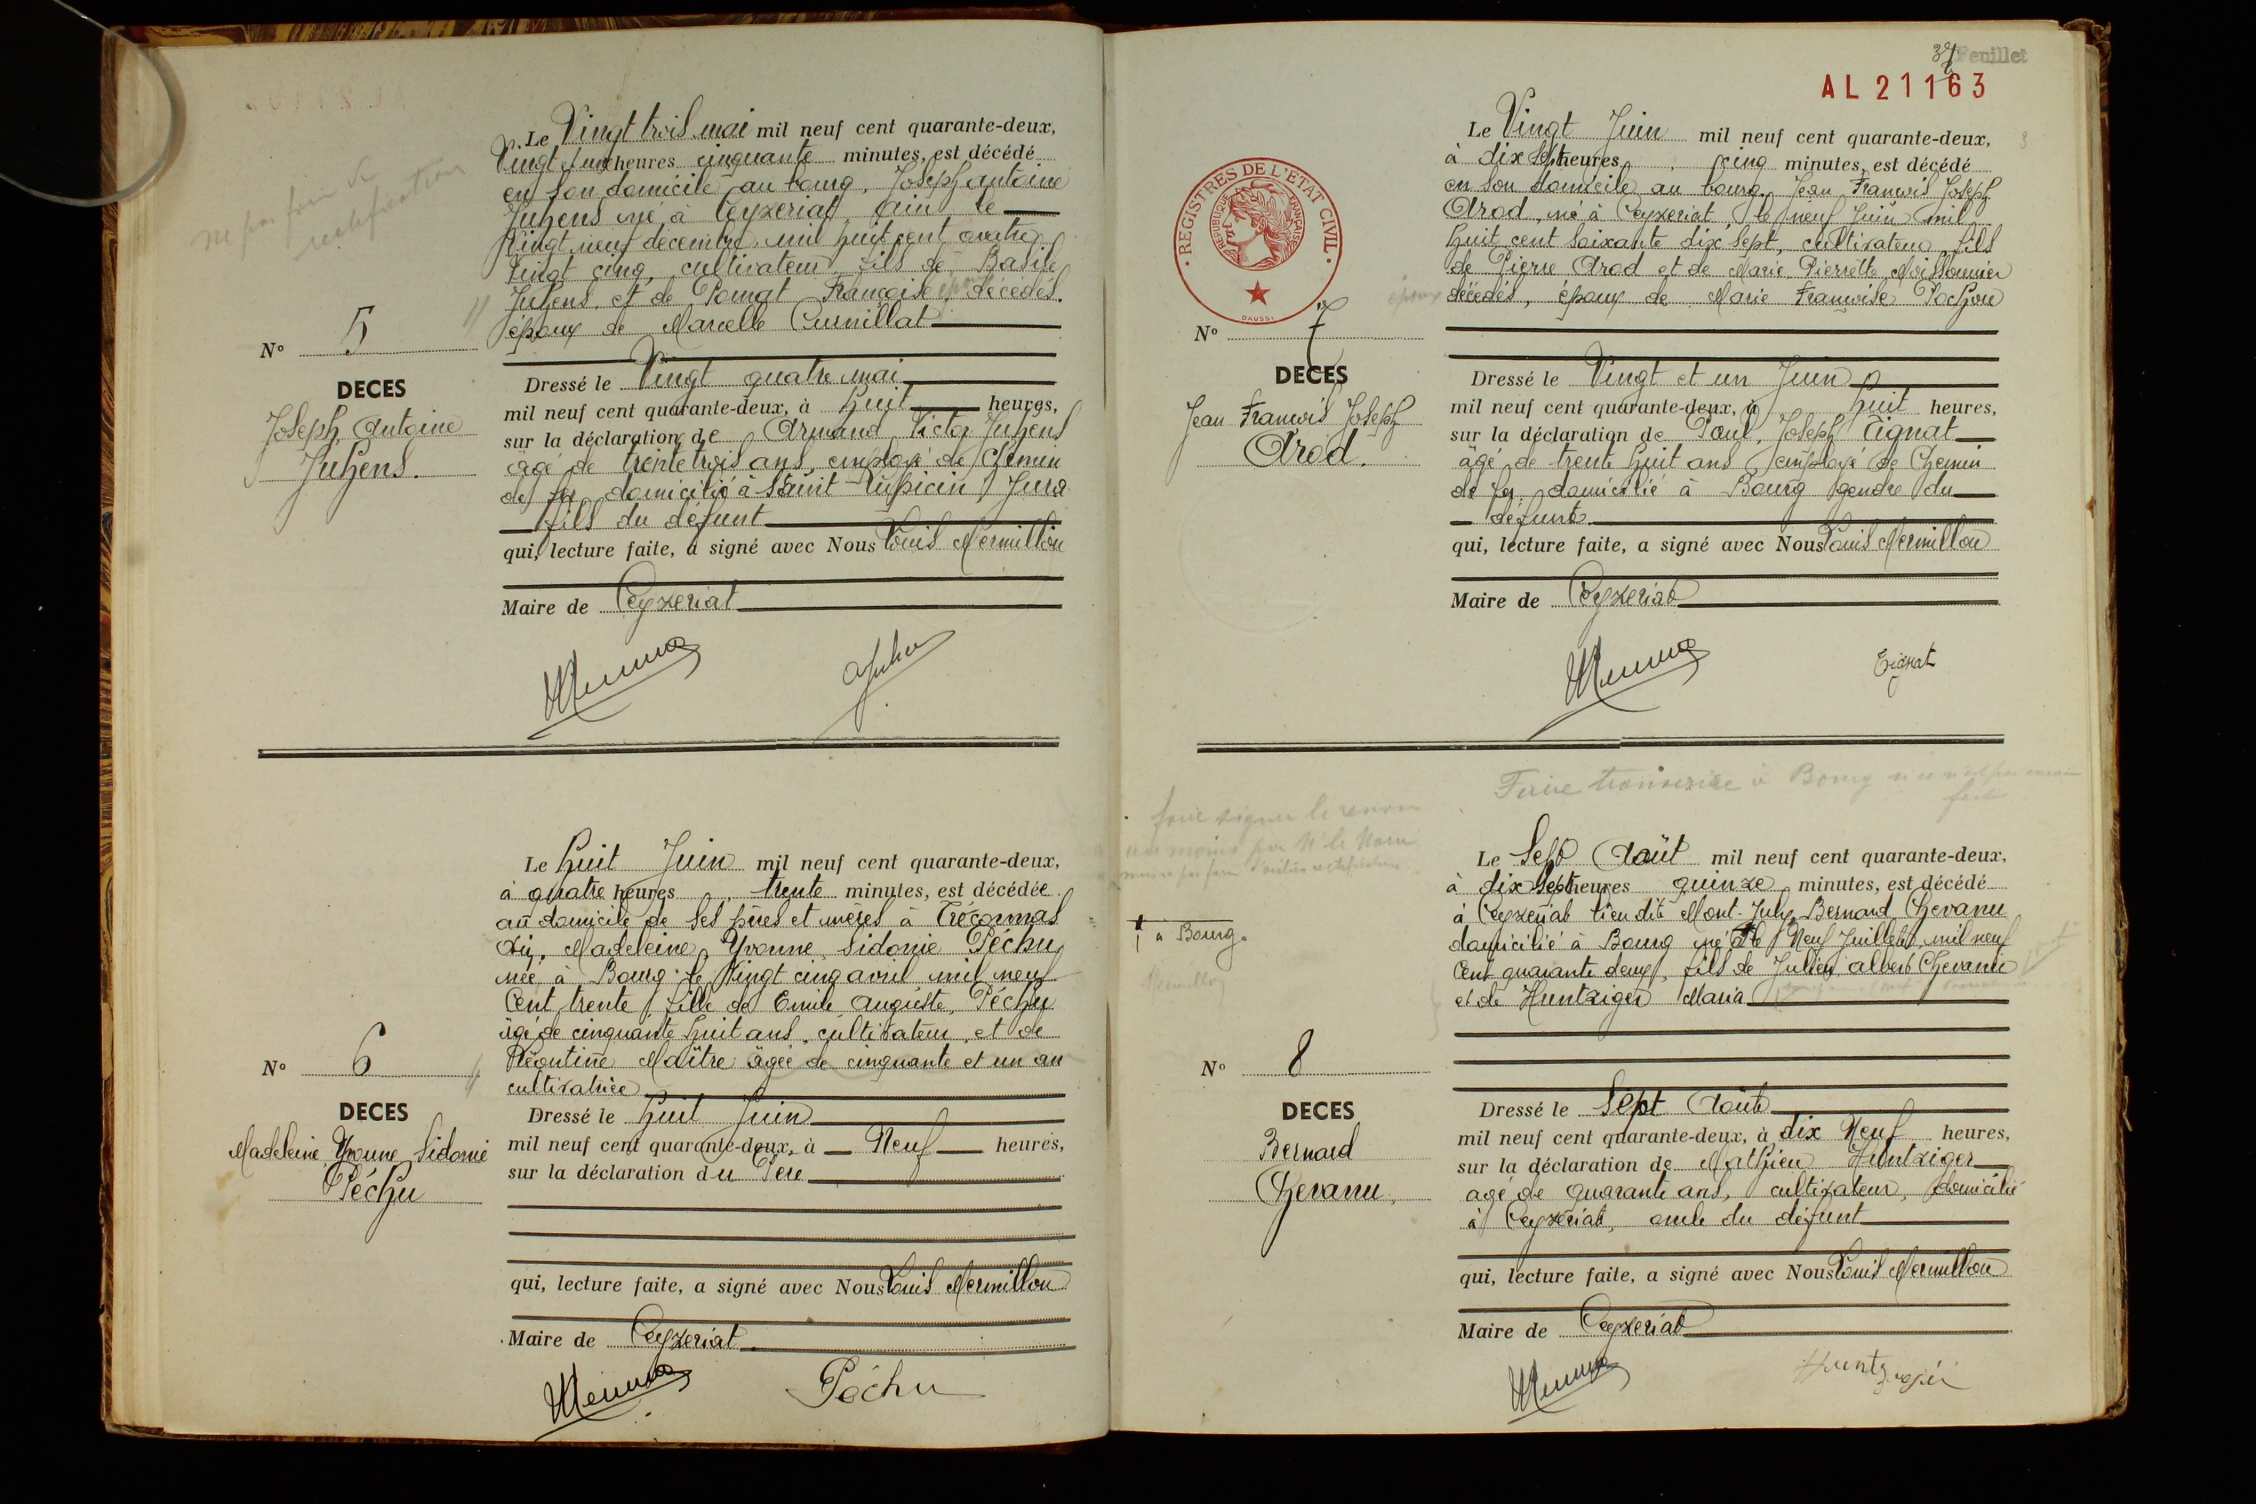 Le Vingt trois mai mil neuf cent quarante-deux,
Vingt et une heures cinquante minutes, est décédé
en son domicile au bourg, Joseph Antoine
Juhens né à Ceyzeriat Ain le
Vingt neuf décembre mil huit cent quatre
Vingt cinq, cultivateur fils de Basile
Juhens et de Françoise décédés.
époux de Marcelle Curnillat
N° 5
DECES
Joseph Antoine
Juhens.
Dressé le Vingt quatre mai
mil neuf cent quarante-deux, à huit heures,
sur la déclaration de Armand Victor Juhens
âgé de trente trois ans, employé de chemin
de fer domicilié à Saint Lupicin Jura
fils du défunt
qui, lecture faite, a signé avec Nous Louis Mermillon
Maire de Ceyzeriat
ne pas faire de
rectification
Le huit Juin mil neuf cent quarante-deux,
à quatre heures, trente minutes, est décédée
au domicile de ses pères et mères à Tréconnas
Madeleine Yvonne Sidonie Péchu
née à Bourg le Vingt cinq avril mil neuf
Cent trente, fille de Emile Auguste Péchu
âgé de cinquante huit ans, cultivateur, et de
Léontine Maître âgée de cinquante et un an
cultivatrice
N° 6
DECES
Madeleine Yvonne Sidonie
Péchu
Dressé le huit Juin
mil neuf cent quarante-deux, à Neuf heures,
sur la déclaration du Père
qui, lecture faite, a signé avec Nous Louis Mermillon
Maire de Ceyzeriat
Péchu
Feuillet
AL 21163
REGISTRES DE L'ETAT CIVIL
REPUBLIQUE FRANÇAISE
DAUSSI
Le Vingt Juin mil neuf cent quarante-deux,
à dix sept heures, cinq minutes, est décédé
en son domicile au bourg, Jean François Joseph
Arod, né à Ceyzeriat, le neuf Juin mil
huit cent soixante dix sept, cultivateur, fils
de Pierre Arod et de Marie Pierrette Moissonnier
décédés, époux de Marie Françoise Pochon
N° 7
DECES
Jean François Joseph
Arod.
Dressé le Vingt et un Juin
mil neuf cent quarante-deux, à huit heures,
sur la déclaration de Paul, Joseph Tignat
âgé de trente huit ans employé de Chemin
de fer domicilié à Bourg gendre du
défunt
qui, lecture faite, a signé avec Nous Louis Mermillon
Maire de Ceyzeriat
Tignat
Faire transcrire à Bourg
Le Sept Août mil neuf cent quarante-deux,
à dix sept heures quinze minutes, est décédé
à Ceyzeriat lieu dit Mont-July, Bernard Chevanu
domicilié à Bourg né le Neuf Juillet mil neuf
Cent quarante deux, fils de Julien Albert Chevanu
et de Huntziger Maria
à Bourg.
N° 8
DECES
Bernard
Chevanu.
Dressé le Sept Août
mil neuf cent quarante-deux, à dix Neuf heures,
sur la déclaration de Mathieu Huntziger
agé de quarante ans, cultivateur, domicilié
à Ceyzeriat, oncle du défunt
qui, lecture faite, a signé avec Nous Louis Mermillon
Maire de Ceyzeriat